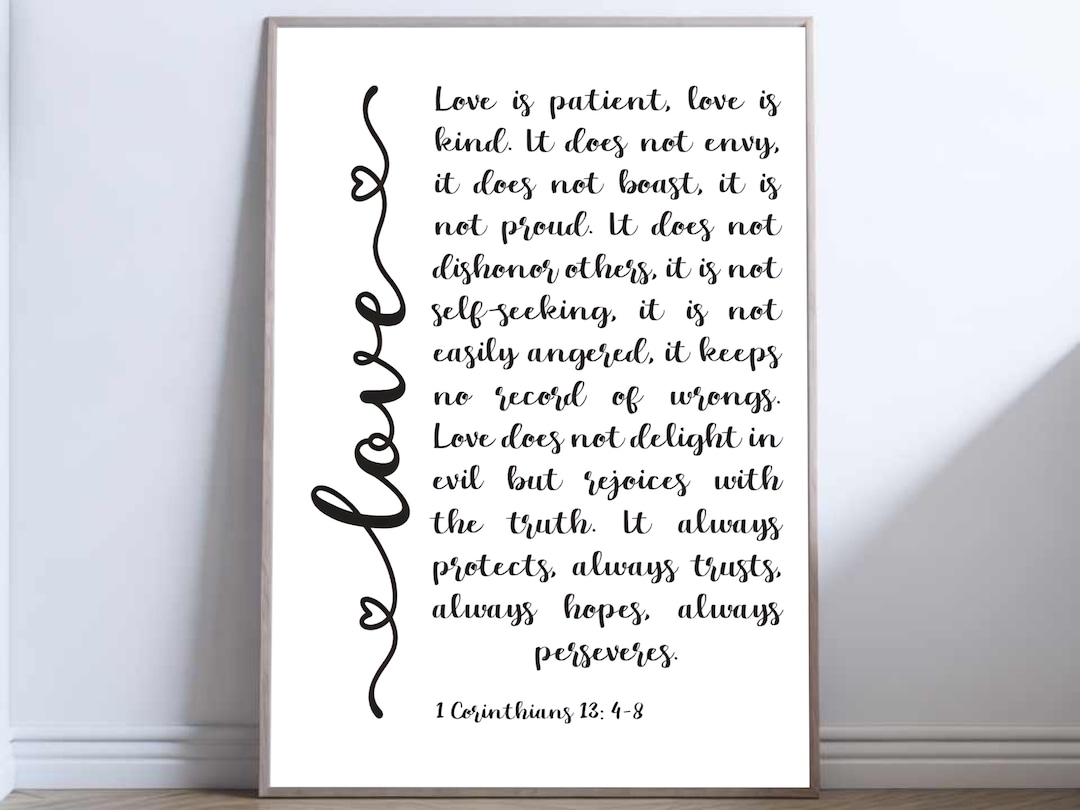 love
Love is patient, love is
kind. It does not envy,
it does not boast, it is
not proud. It does not
dishonor others, it is not
self-seeking, it is not
easily angered, it keeps
no record of wrongs.
Love does not delight in
evil but rejoices with
the truth. It always
protects, always trusts,
always hopes, always
perseveres.
1 Corinthians 13: 4-8